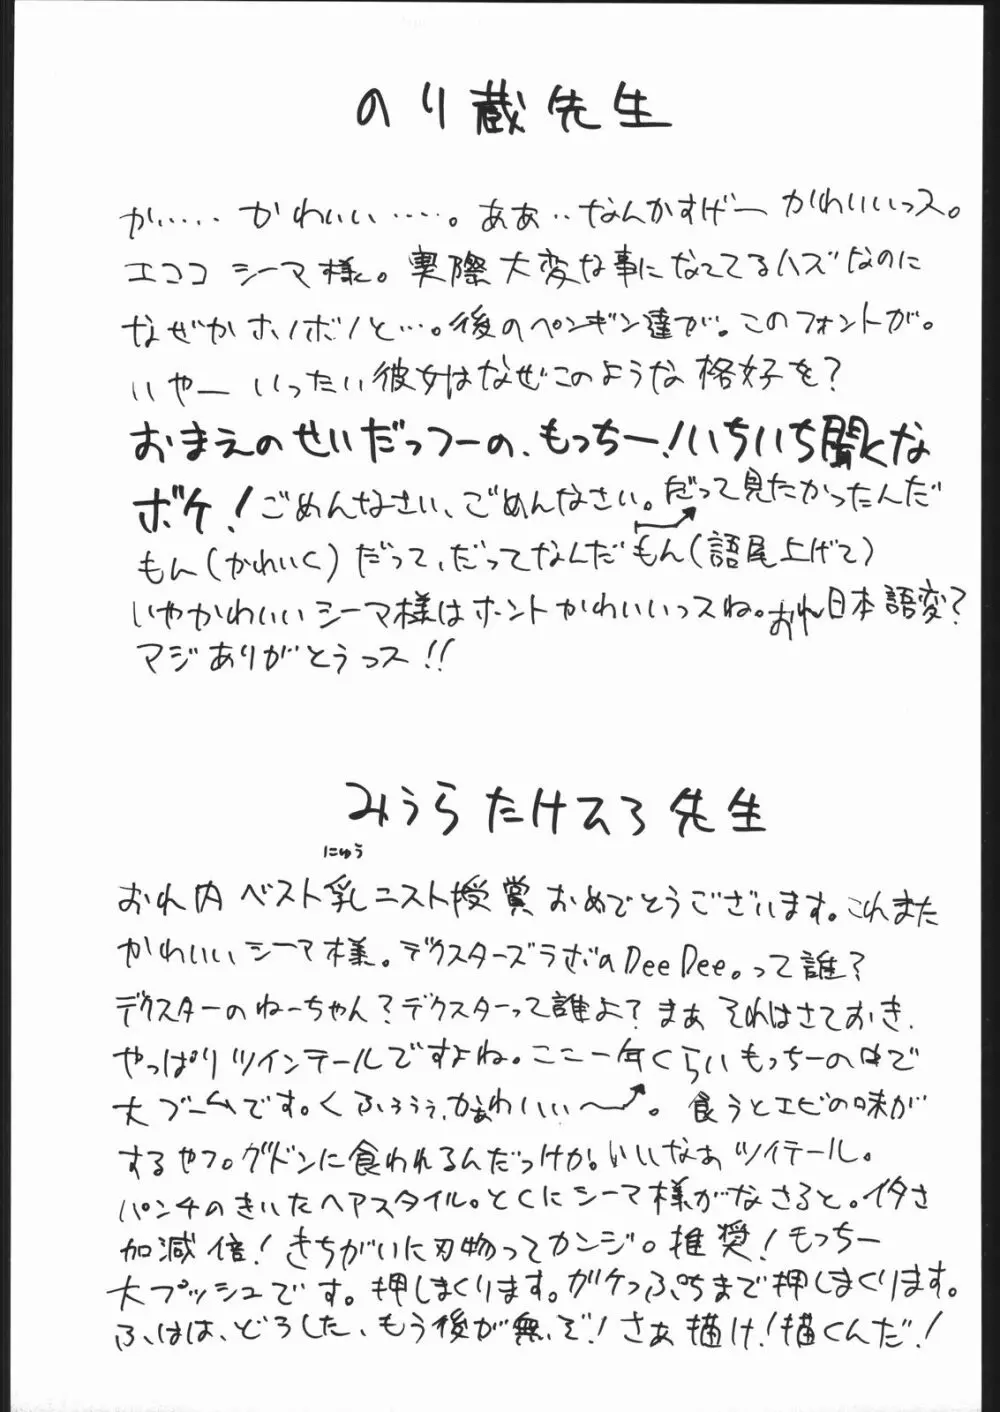 のり蔵先生
か‥‥‥かわいい‥‥‥。ああ‥なんかすげーかわいいっス。
エココ シーマ様。実際大変な事になってるハズなのに
なぜかホノボノと…。後のペンギン達が。このフォントが。
いやーいったい彼女はなぜこのような格好を？
おまえのせいだっつーの、もっちー！いちいち聞くな
ボケ！ごめんなさい、ごめんなさい。だって見たかったんだ
もん（かわいく）だって、だってなんだもん（語尾上げて）
いやかわいいシーマ様はホントかわいいっスね。おれ日本語変？
マジありがとうっス!!
みうらたけひろ先生
にゅう
おれ内ベスト乳ニスト授賞おめでとうございます。これまた
かわいいシーマ様。デクスターズラボのDee Dee。って誰？
デクスターのねーちゃん？デクスターって誰よ？まあそれはさておき、
やっぱりツインテールですよね。ここ一年くらいもっちーの中で
大ブームです。くふぅぅぅ、かぁわいいい〜。食うとエビの味が
するやつ。グドンに食われるんだっけか。いいなぁツイテール。
パンチのきいたヘアスタイル。とくにシーマ様がなさると。イタさ
加減倍！きちがいに刃物ってカンジ。推奨！もっちー
大プッシュです。押しまくります。ガケっぷちまで押しまくります。
ふはは、どうした、もう後が無いぞ！さあ描け！描くんだ！